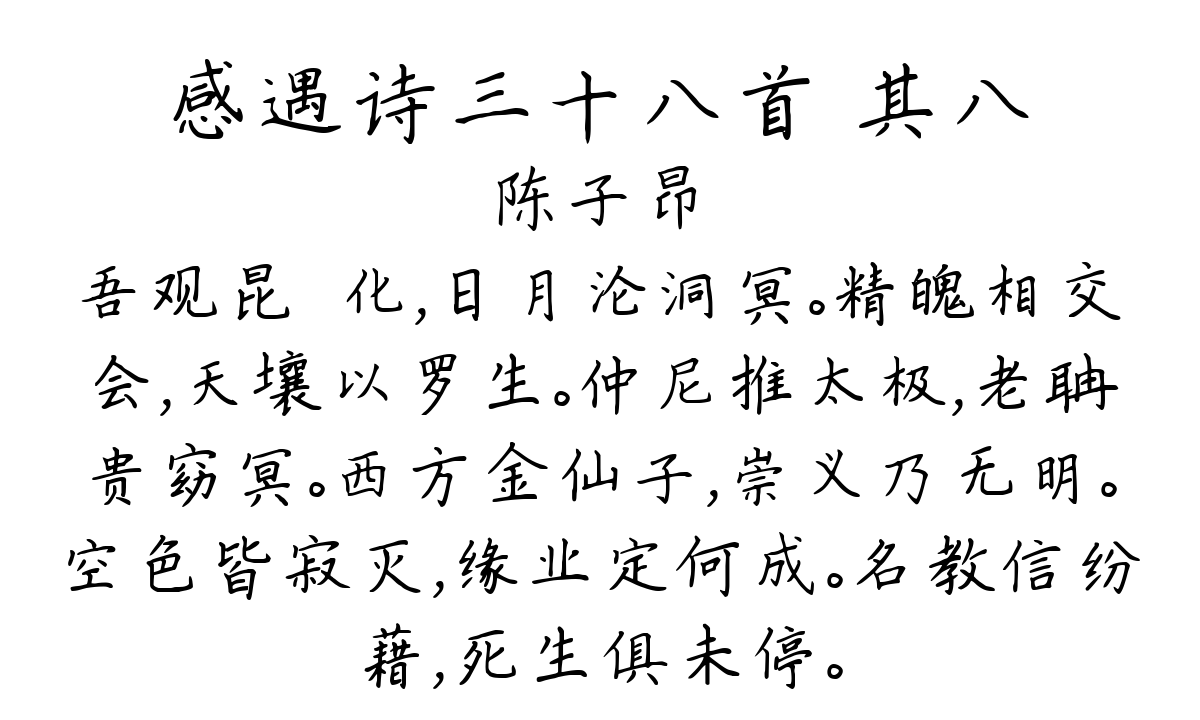 感遇诗三十八首 其八
陈子昂
吾观昆 化,日月沦洞冥。精魄相交
会,天壤以罗生。仲尼推太极,老聃
贵窈冥。西方金仙子,崇义乃无明。
空色皆寂灭,缘业定何成。名教信纷
藉,死生俱未停。